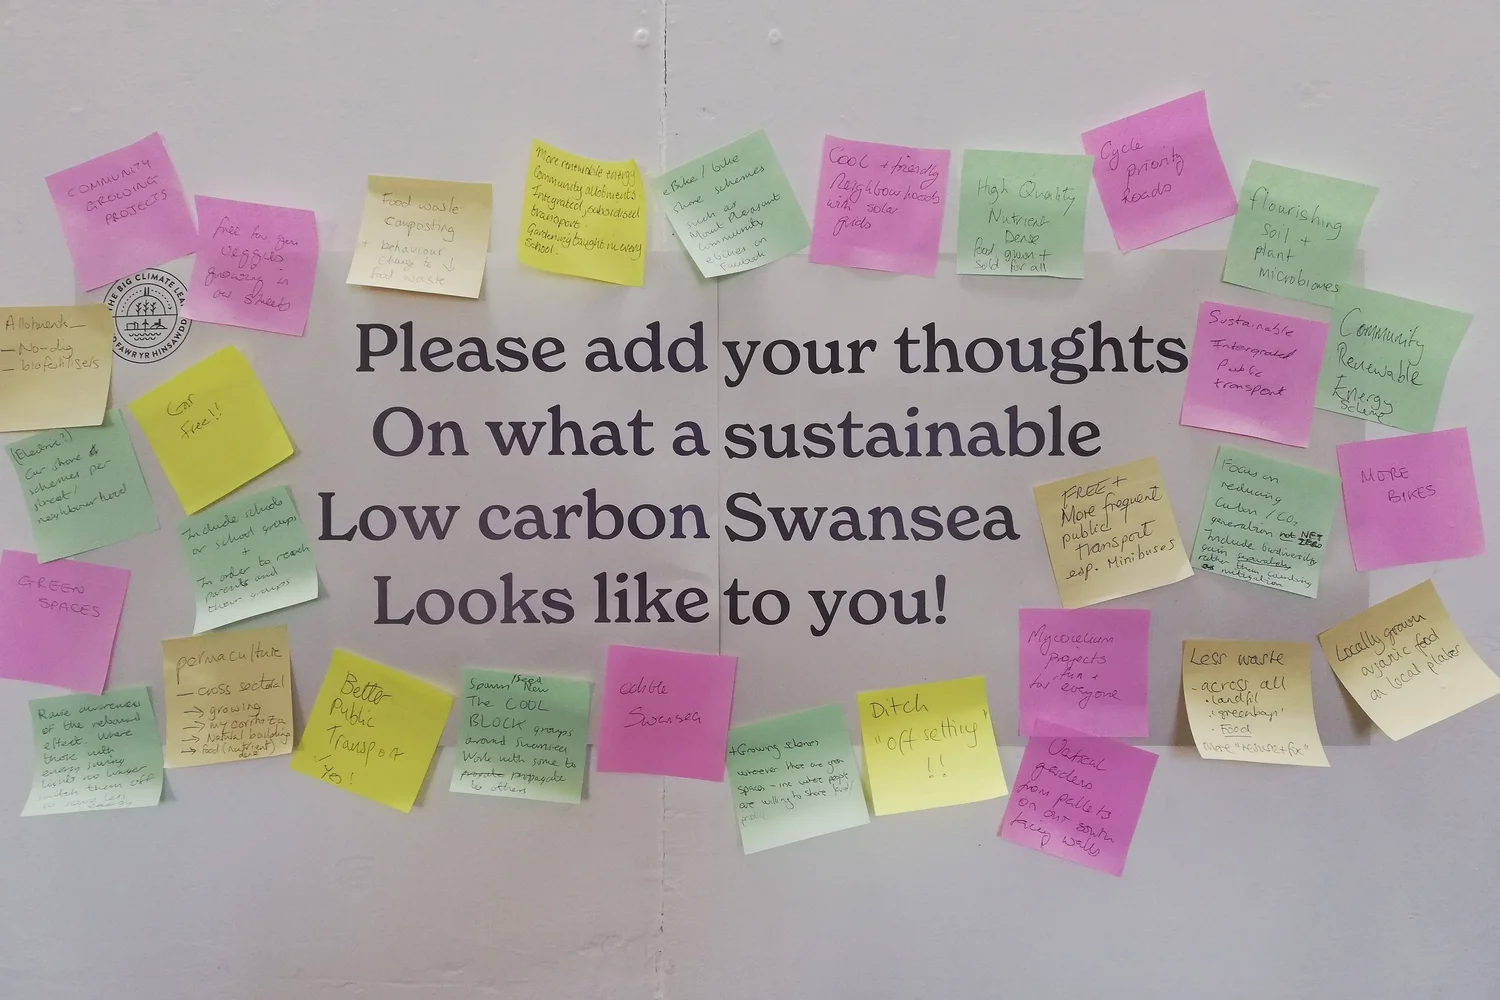 Please add your thoughts
On what a sustainable
Low carbon Swansea
Looks like to you!
THE BIG CLIMATE
COMMUNITY
GROWING
PROJECTS
free for you
veggies
growing in
our streets
Food waste
composting
+ behaviour
Change to ↓
food waste
More renewable energy
Community allotments.
Integrated, subsidised
transport.
Gardening taught in every
school.
eBike / bike
share schemes
such as
Mount Pleasant
Community
ebikes on
Facebook
Cool + friendly
Neighbourhoods
with solar
High Quality
Nutrient
Dense
Food grown +
sold for all
Cycle
priority
Roads
flourishing
soil +
plant
microbiomes
Allotments
- No-dig
- biofertilisers
Car
Free!!
Sustainable
Intergrated
Public
transport
Community
Renewable
Energy
Scheme
(Electric?)
Car share
schemes per
street/
neighbourhood
Include schools
or school groups
+
In order to reach
parents and
their groups
FREE +
More frequent
public
transport
esp. Minibuses
Focus on
reducing
Carbon / CO2
generation not NET
ZERO
Include biodiversity
gain separately
rather than
as mitigation
MORE
BIKES
GREEN
SPACES
permaculture
- cross sectoral
→ growing
→ mycorrhiza
→ Natural building
→ Food (nutrient)
dense
Better
Public
Transport
Yo!
Spawn/Seed New
The COOL
BLOCK groups
around Swansea
Work with some to
propagate
to others
edible
Swansea
Mycoculeum
projects
fun +
for everyone
Less waste
- across all
• landfil
• 'greenbags'
• Food
More "reuse + fix"
Locally grown
organic food
on local plates
Raise awareness
of the rebound
effect. Where
those with
energy saving
lights no longer
switch them off
so save less
energy
+ Growing schemes
wherever there are green
spaces - inc where people
are willing to share land/
Ditch
"off setting"
!!
Vertical
gardens
from pallets
on our south
facing walls